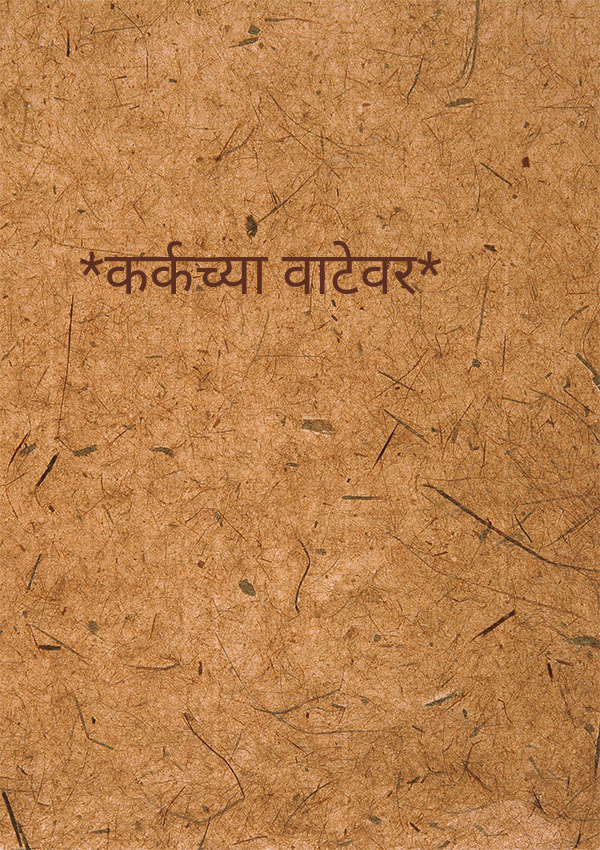 *कर्कच्या वाटेवर*